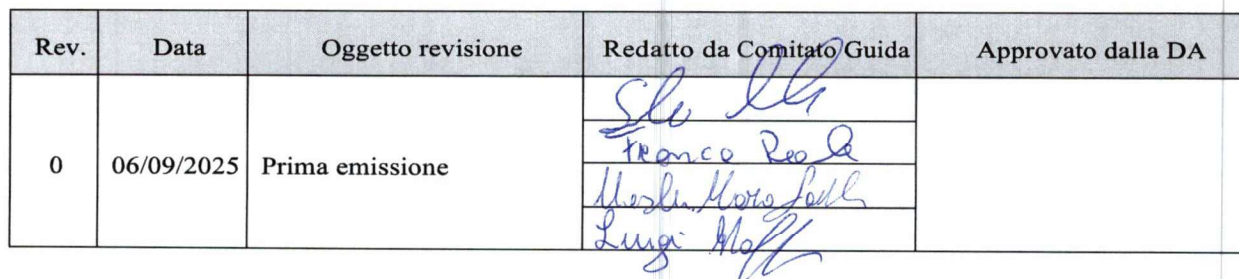 Rev. Data Oggetto revisione Redatto da Comitato Guida Approvato dalla DA
0 06/09/2025 Prima emissione
Franco Reale
Luigi